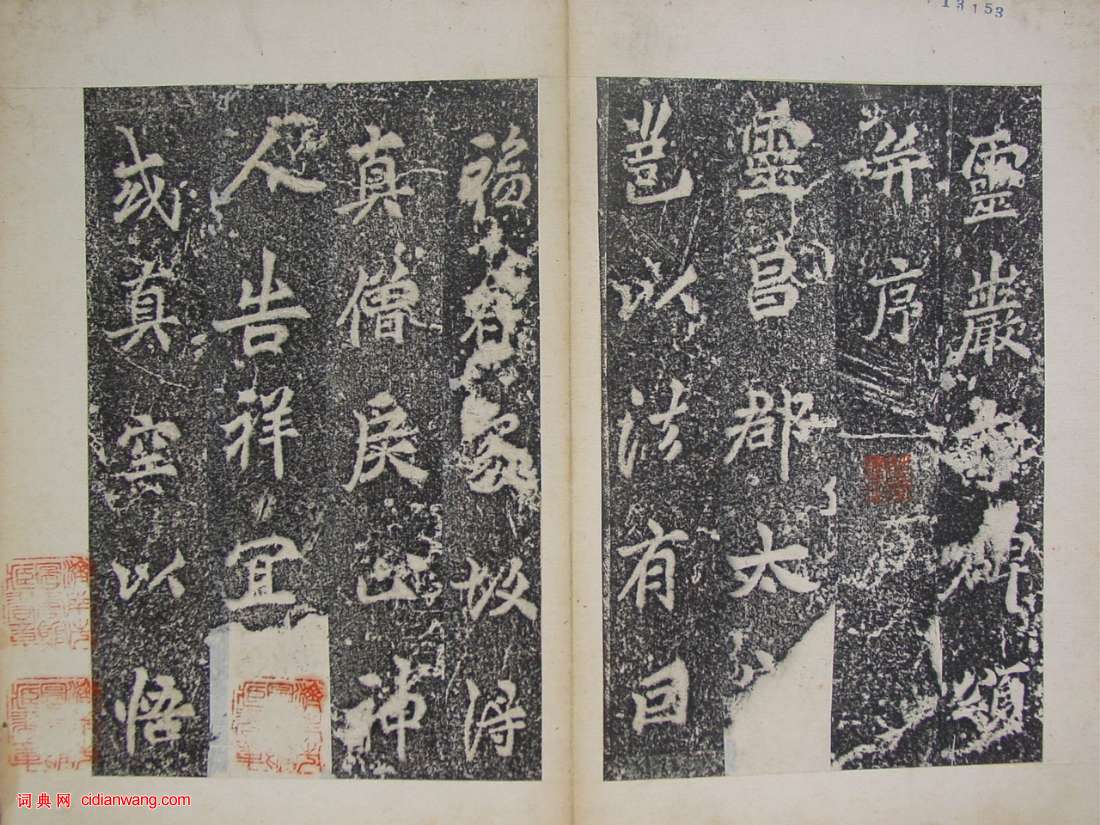 13153
靈巖寺碑頌
并序
靈昌郡太
豈以法有因
福有象故得
真僧戾止神
人告祥宜
或真空以悟
词典网 cidianwang.com